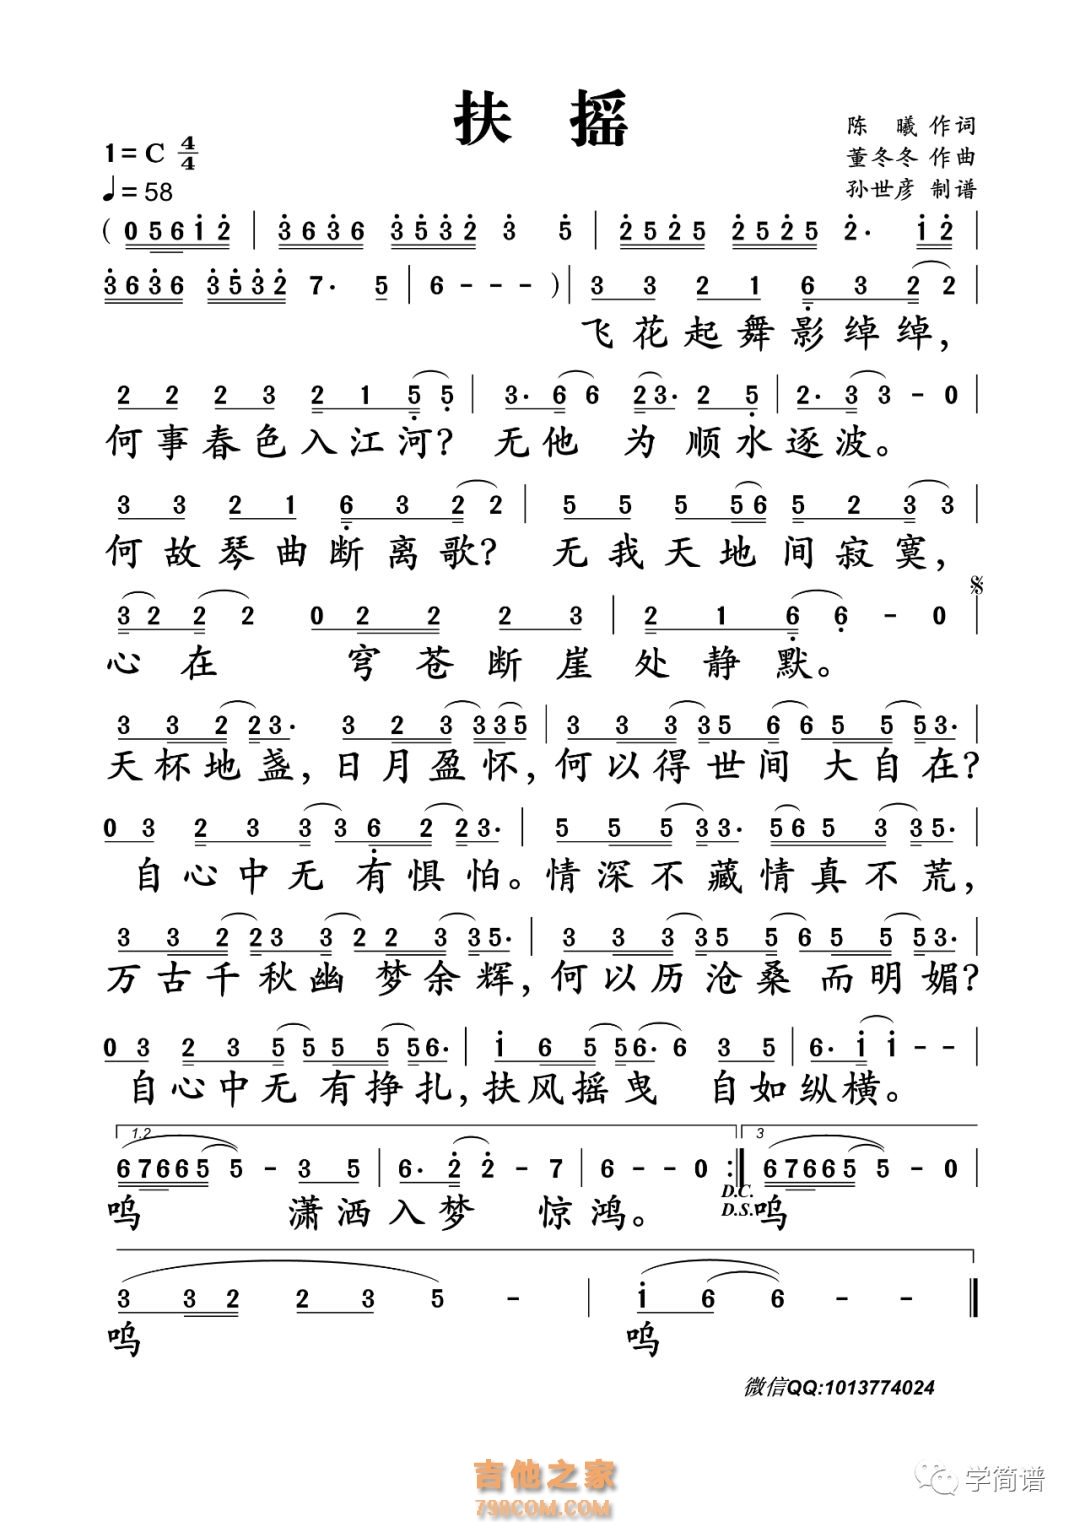 扶 摇
陈 曦 作词
1=C 4/4
董冬冬 作曲
♩=58
孙世彦 制谱
( 0 5 6 1 2 | 3 6 3 6 3 5 3 2 3 5 | 2 5 2 5 2 5 2 5 2· 1 2 |
3 6 3 6 3 5 3 2 7· 5 | 6 - - - ) | 3 3 2 1 6 3 2 2 |
飞花起舞影绰绰,
2 2 2 3 2 1 5 5 | 3· 6 6 2 3· 2 5 | 2· 3 3 - 0
何事春色入江河? 无他 为 顺水逐波。
3 3 2 1 6 3 2 2 | 5 5 5 5 6 5 2 3 3 |
何故琴曲断离歌? 无我天地间寂寞,
3 2 2 2 0 2 2 2 3 | 2 1 6 6 - 0 |
心在 穹苍断崖处静默。
3 3 2 2 3· 3 2 3 3 3 5 | 3 3 3 3 5 6 6 5 5 5 3· |
天杯地盏,日月盈怀,何以得世间 大自在?
0 3 2 3 3 3 6 2 2 3· | 5 5 5 3 3· 5 6 5 3 3 5· |
自心中无 有惧怕。情深不藏情真不荒,
3 3 2 2 3 3 2 2 3 3 5· | 3 3 3 3 5 5 6 5 5 5 3· |
万古千秋幽 梦余辉,何以历沧桑 而明媚?
0 3 2 3 5 5 5 5 5 6· | 1 6 5 5 6· 6 3 5 | 6· 1 1 - - |
自心中无 有挣扎,扶风摇曳 自如纵横。
1.2
3
6 7 6 6 5 5 - 3 5 | 6· 2 2 - 7 | 6 - - 0 :| 6 7 6 6 5 5 - 0
D.C.
D.S.
呜 潇洒入梦 惊鸿。 呜
3 3 2 2 3 5 - | 1 6 6 - - ‖
呜 呜
微信QQ:1013774024
吉他之家
798COM.COM
学简谱